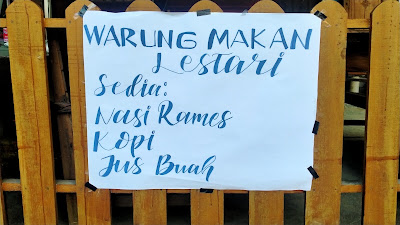 WARUNG MAKAN
Lestari
Sedia:
Nasi Rames
Kopi
Jus Buah